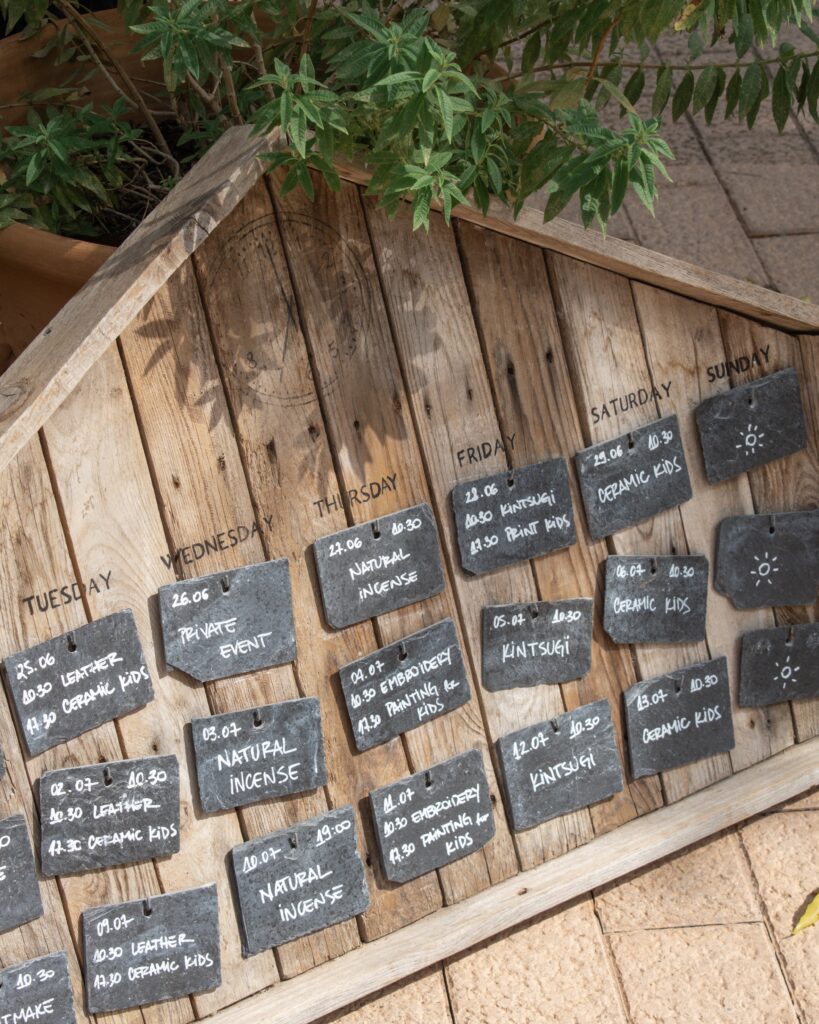 TUESDAY
WEDNESDAY
THURSDAY
FRIDAY
SATURDAY
SUNDAY
25.06
10.30 LEATHER
17.30 CERAMIC KIDS
26.06
PRIVATE
EVENT
27.06 10.30
NATURAL
INCENSE
28.06
10.30 KINTSUGI
17.30 PRINT KIDS
29.06 10.30
CERAMIC KIDS
02.07 10.30
10.30 LEATHER
17.30 CERAMIC KIDS
03.07
NATURAL
INCENSE
04.07
10.30 EMBROIDERY
17.30 PAINTING for
KIDS
05.07 10.30
KINTSUGI
06.07 10.30
CERAMIC KIDS
09.07
10.30 LEATHER
17.30 CERAMIC KIDS
10.07 19:00
NATURAL
INCENSE
11.07
10.30 EMBROIDERY
17.30 PAINTING for
KIDS
12.07 10.30
KINTSUGI
13.07 10.30
CERAMIC KIDS
10.30